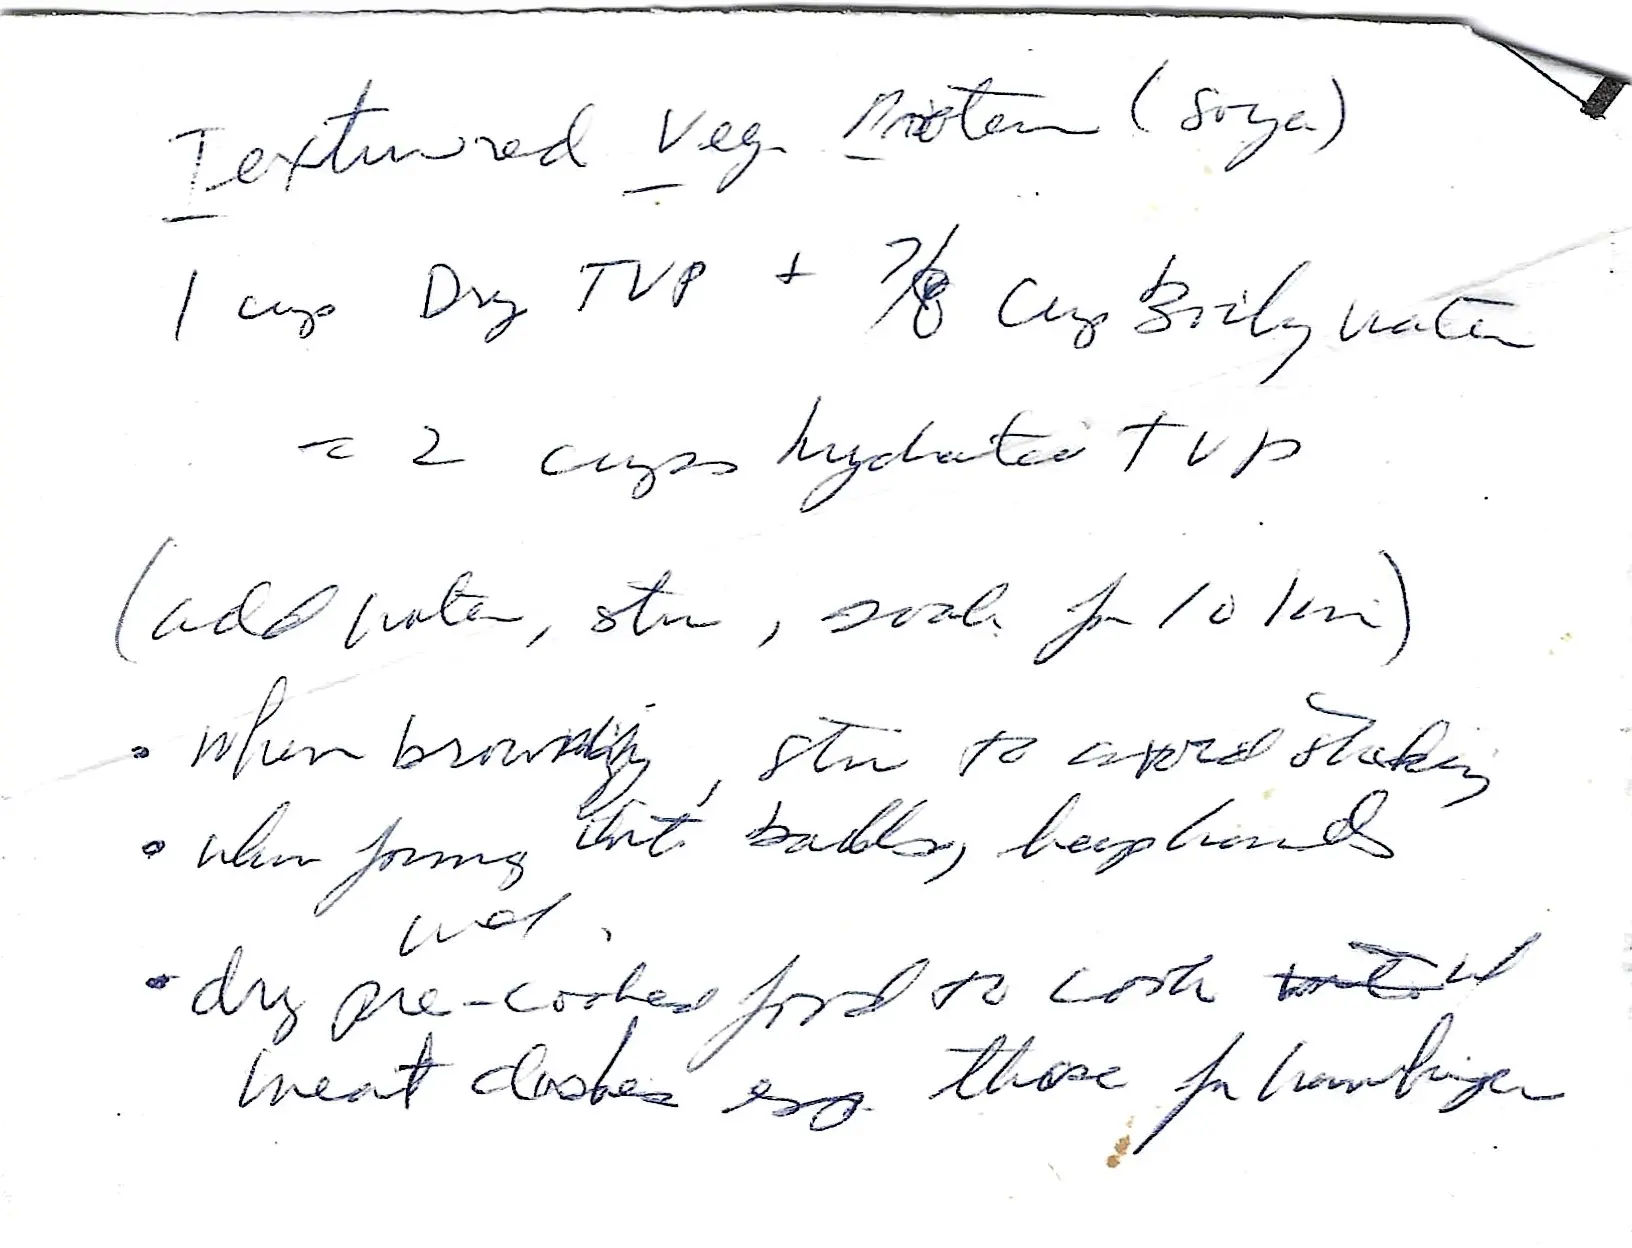 Textured Veg. Protein (soya)
1 cup Dry TVP + 7/8 cup Boiling water
= 2 cups hydrated TVP
(add water, stir, soak for 10 min)
• when browning, stir to avoid sticking
• when forming into balls, keep hands
wet.
• dry pre-cooked food to cook w
meat dishes eg. those for hamburger